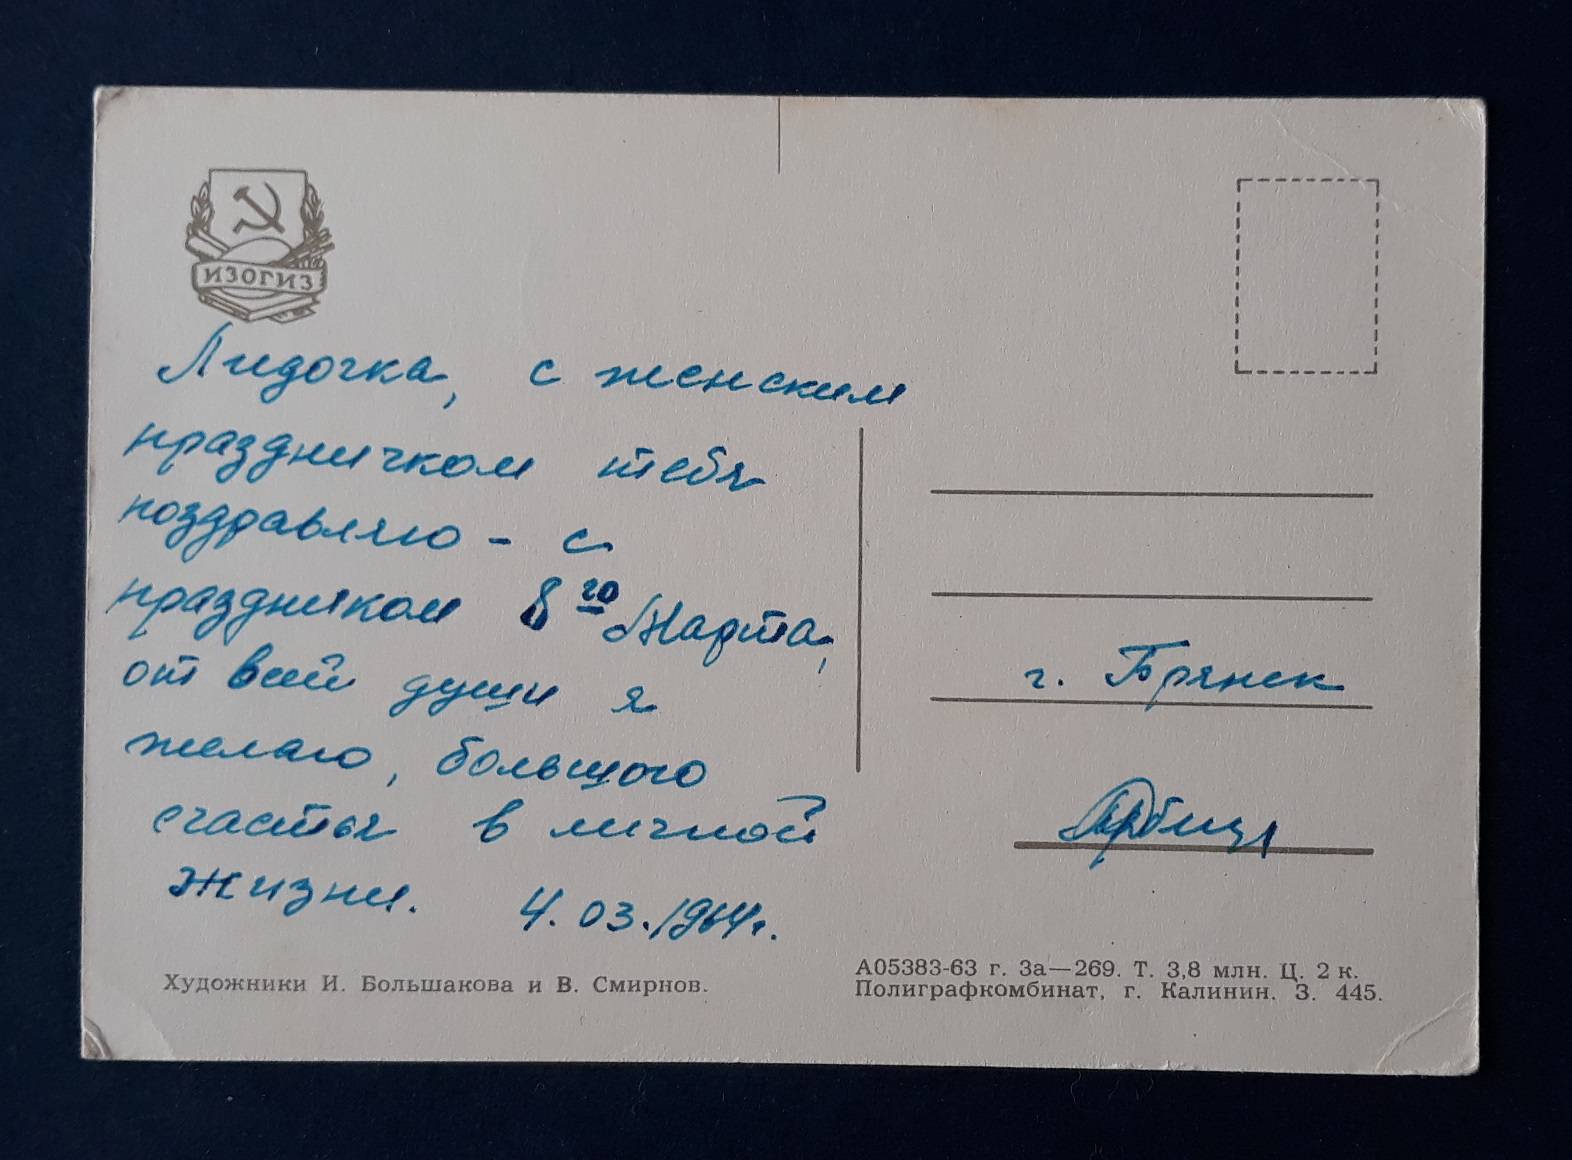 ИЗОГИЗ
Лидочка, с женским
праздничком тебя
поздравляю - с
праздником 8го Марта,
от всей души я
желаю, большого
счастья в личной
жизни. 4.03.1964г.
г. Брянск
Художники И. Большакова и В. Смирнов.
А05383-63 г. За—269. Т. 3,8 млн. Ц. 2 к.
Полиграфкомбинат, г. Калинин. З. 445.